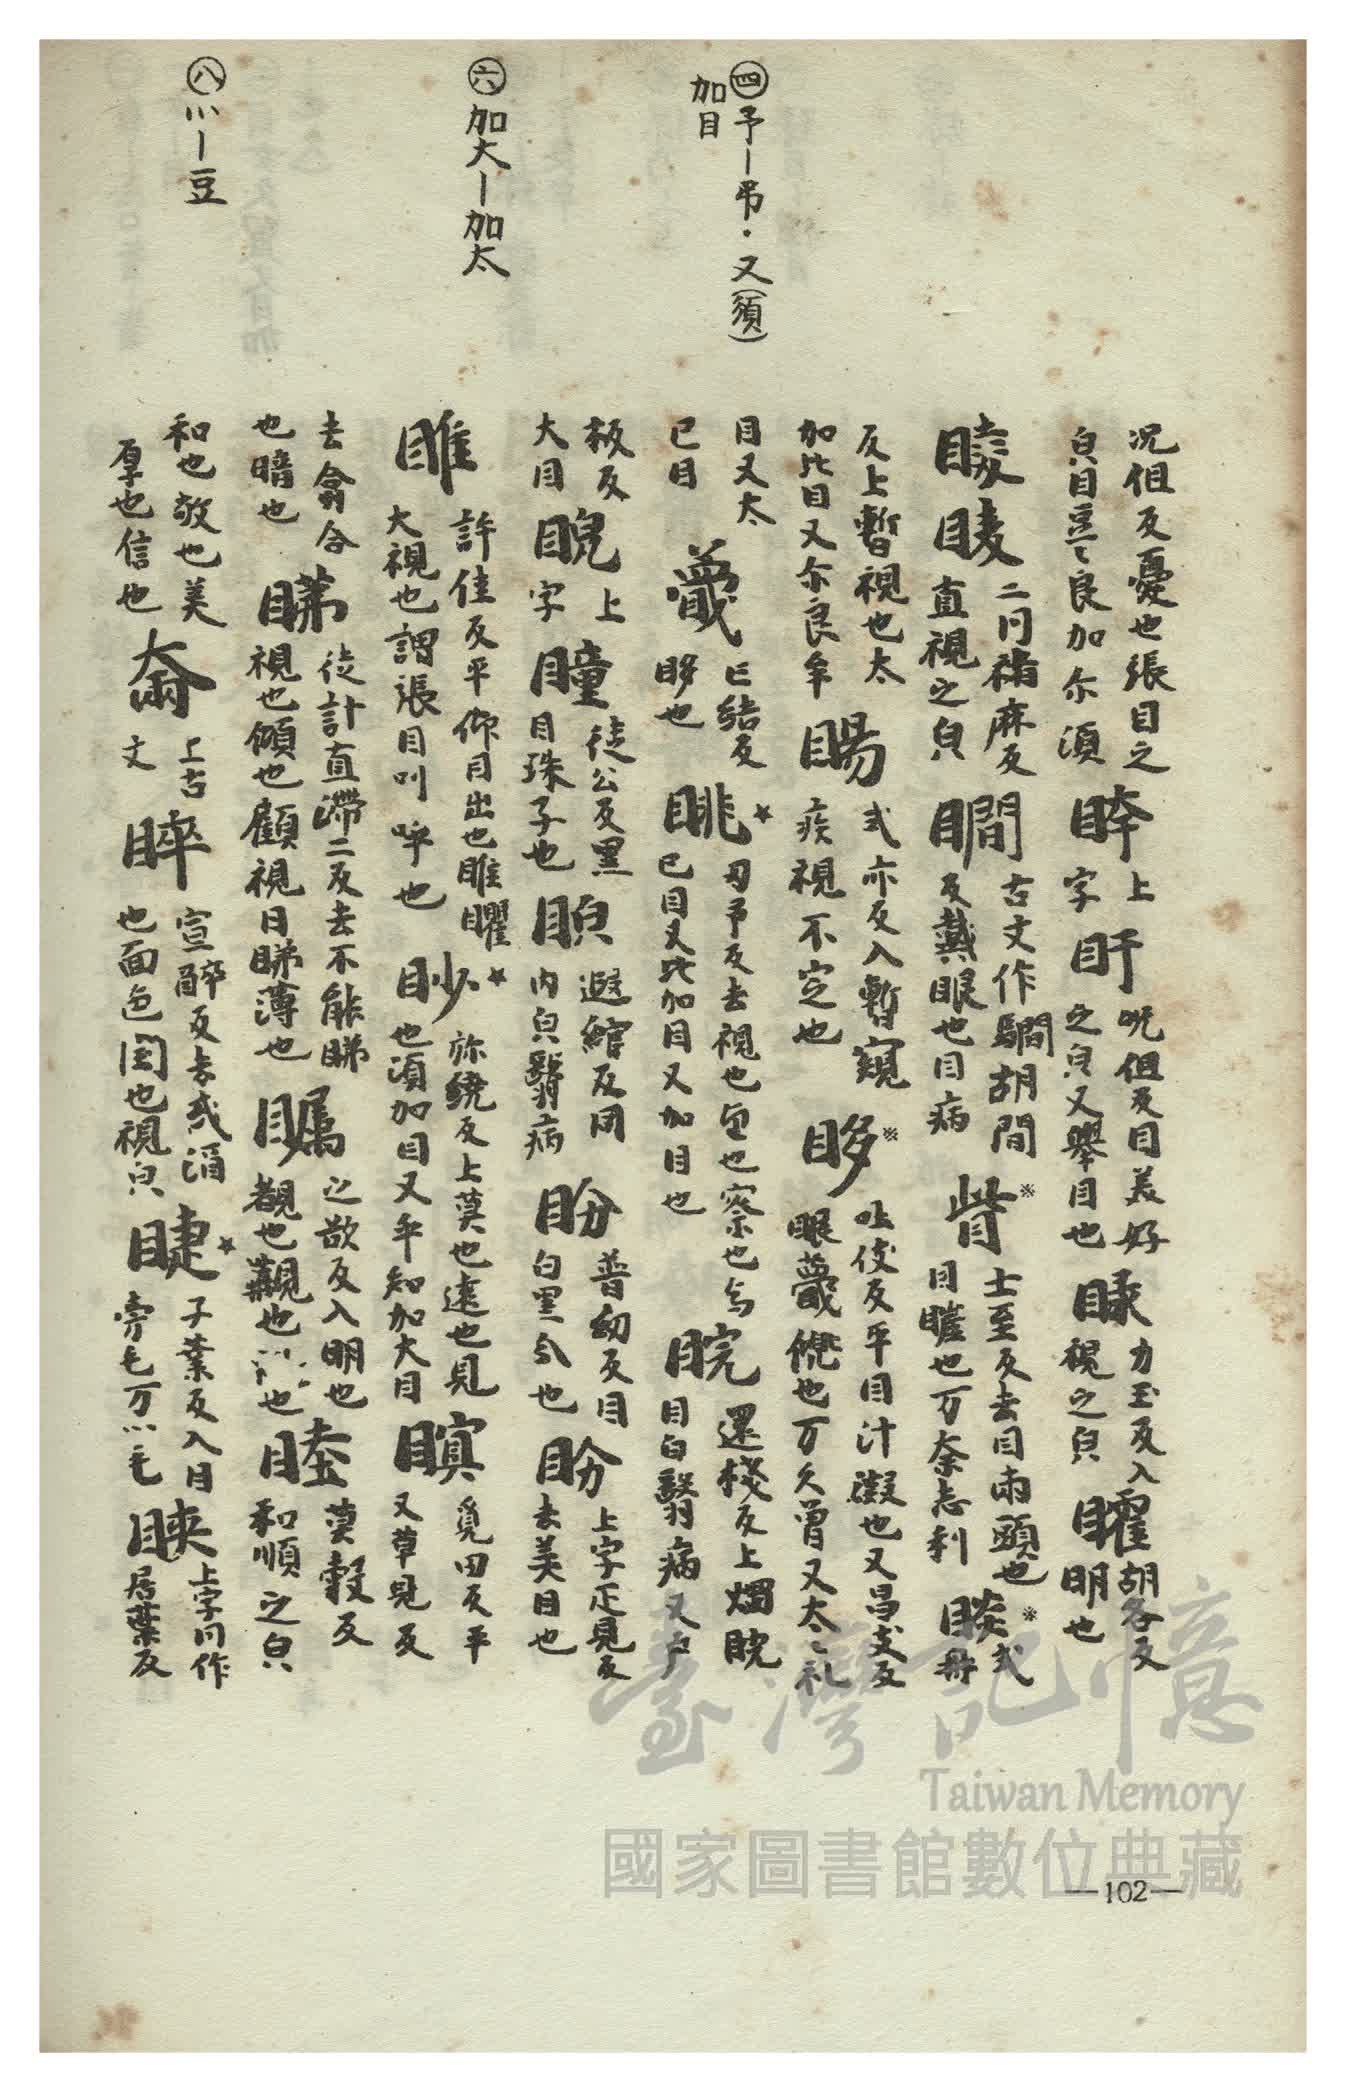 ㊃予—吊·又(須)
加目
㊅加大—加太
㊇灬—豆
况但反憂也張目之
皃目豆〻良加尓須
睟上
字
盱
呪但反目美好
之皃又舉目也
睩力玉反入
視之皃
矐胡各反
明也
二同補麻反
直視之皃
瞯古文作驎胡間
反戴眼也目病
眥※士至反去目兩頭也
目䁪也万奈志利
睒※式冊
反上暫視也太
加比目又尓良牟
睗式亦反入暫窺
疾視不定也
眵※吐伎反平目汁凝也又昌支反
眼蔑儊也万久曾又太〻礼
目又太
已目
蔑亡結反
眵也
眺★丑予反去視也望也察也亐
已目又比加目又加目也
睆還棧反上燭睆
目白翳病又戶
板反
大目
睍上
字
瞳徒公反黑
目珠子也
遐綰反同
内白翳病
盼普幼反目
白黑分也
盼上字疋見反
去美目也
睢許佳反平仰目出也睢矐
大視也謂張目叫呼也
眇★弥繞反上莫也遠也見
也須加目又乎知加大目
瞑覓田反平
又草見反
去翕合
也暗也
睇徒計直滯二反去不能睇
視也傾也顧視曰睇薄也
矚之欲反入明也
覩也觀也 也
睦莫穀反
和順之皃
和也敬也美
厚也信也
上古
文
睟宣醉反去或涓
也面色閏也視皃
睫★子葉反入目
旁毛万灬毛
䀹上字同作
居葉反
—102—
臺灣記憶
Taiwan Memory
國家圖書館數位典藏